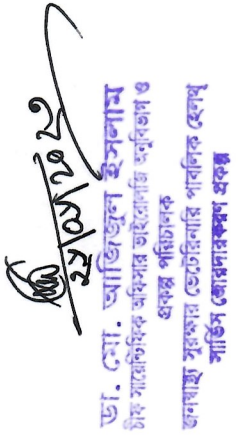 ২৮/০৮/২০২৩
ডা. মো. আজিজুল ইসলাম
চীফ সায়েন্টিফিক অফিসার ভাইরোলজি অনুবিভাগ ও
প্রকল্প পরিচালক
জনস্বাস্থ্য সুরক্ষায় ভেটেরিনারি পাবলিক হেলথ্
সার্ভিস জোরদারকরণ প্রকল্প